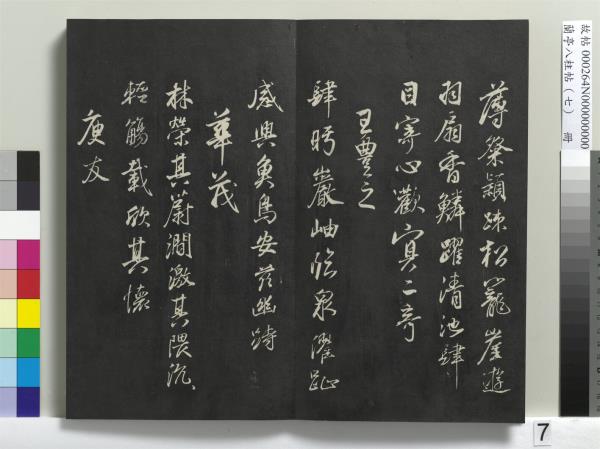 薄粲穎疎松籠崖遊
羽扇霄鱗躍清池肆
目寄心歡冥二奇
王豐之
肆眄巖岫臨泉濯趾
感興魚鳥安茲幽峙
華茂
林榮其蔚澗激其隈汎汎
輕觴載欣其懷
庾友
故帖 000264N000000000
蘭亭八柱帖（七） 冊
7